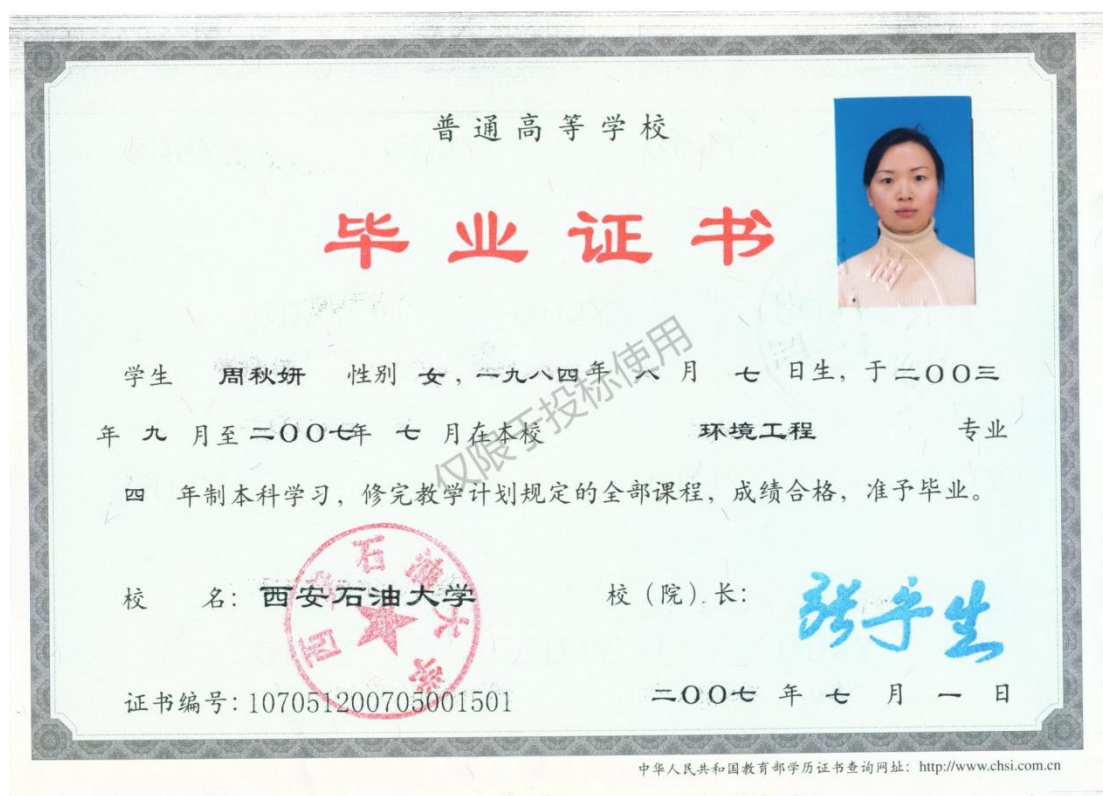 普通高等学校
毕业证书
学生 周秋妍 性别 女，一九八四年 六 月 七 日生，于二00三
年 九 月至二00七年 七 月在本校 环境工程 专业
四 年制本科学习，修完教学计划规定的全部课程，成绩合格，准予毕业。
仅限于投标使用
校 名：西安石油大学 校（院）长：
西安石油大学
张宁生
证书编号：107051200705001501 二00七 年 七 月 一 日
中华人民共和国教育部学历证书查询网址：http://www.chsi.com.cn